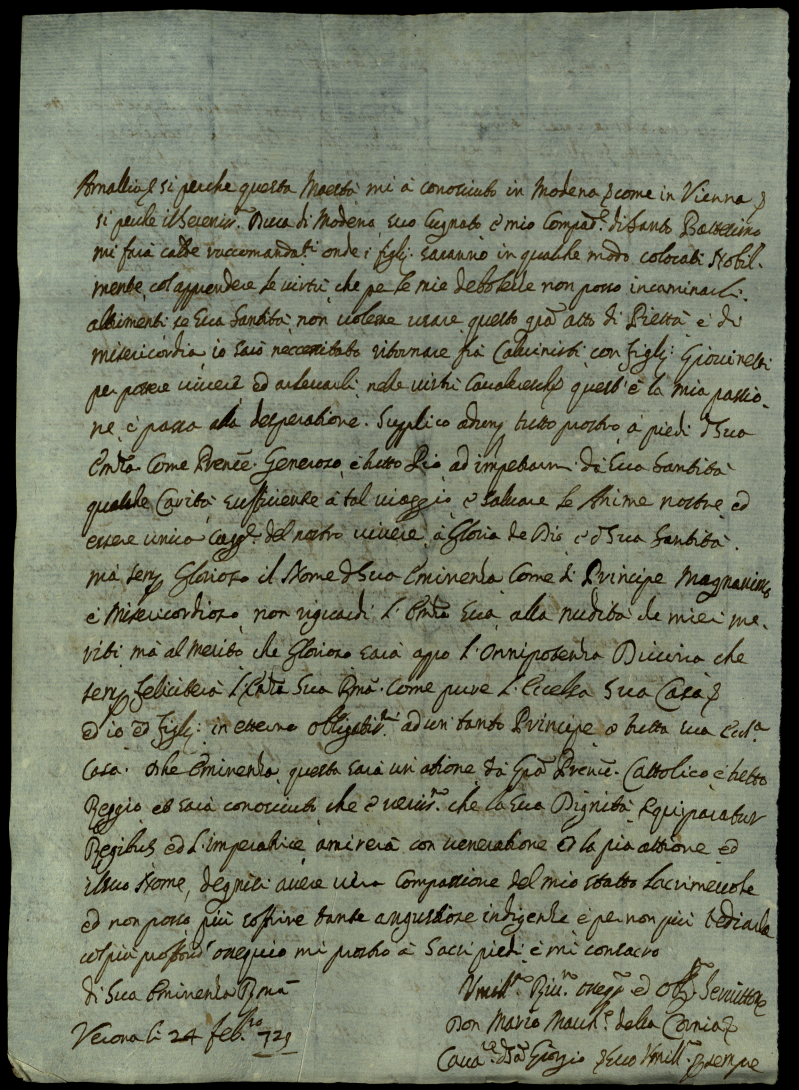 si perche questa Maestà mi à conosciuto in Modena come in Vienna
si perche il Sereniss.º Duca di Modena suo Cugnato è mio Compad.e di Santo Battesimo
mi farà raccomandati onde i figli saranno in qualche modo colocati Nobil-
mente, col apprendere le virtù che per le mie debolezze non posso incaminarli
altrimenti se Sua Santità non volesse usare questo grã atto di Pietta è di
misericordia io sarò neccessitato ritornare frà Calvinisti con figlj Giovinetti
per potere vivere ed allevarli nele virtù Cavaleresche questa è la mia passio-
ne, è passa alla desperatione. Supplico tutto prostro à piedi di Sua
Emza Come Prencē Generoso, è tutto Pio ad impetrarmi dà Sua Santità
qualche Carità sufficiente à tal viaggio è salvare le Anime nostre ed
essere unica del nostro vivere à Gloria de Dio è di Sua Santità.
mà Glorioso il Nome di Sua Eminenza Come di Principe Magnanimo
è Misericordioso, non riguardi l'Emza Sua alla nudità de miei me-
riti mà al Merito che Glorioso sarà appo l'Onnipotenza Divina che
feliciterà l'Emza Sua Rmã Come pure l'Eccelsa Sua Casa
ed io ed figlj in etterno ad un tanto Principe è tutta sua
Casa. Ahe Eminenza questa sarà un atione dà Grã Prencē Cattolico è tutto
Reggio et sarà conosciuti che è che la Sua Dignità Equiparatur
Regibus ed l'imperatrice amirerà con veneratione la pia attione ed
il suo Nome, degnisi avere vera Compassione del mio statto Lacrimevole
ed non posso più soffrire tante angustiose indigenze è per non più tediarla
col più ossequio mi prostro à Sacri piedi è mi consacro
di Sua Eminenza Rmã
Umill.º ed Servittore
Verona li 24 feb.ro 729
Don Mario March.e della Cornia
Cava.re di Sã Giorgio Umill.º sempre